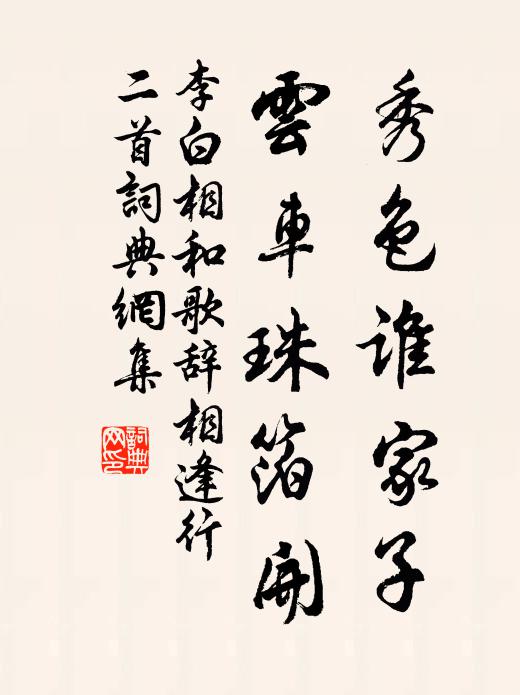 秀色谁家子
雲車珠箔開
李白相和歌辞相逢行
二首詞典網集
詞典網印